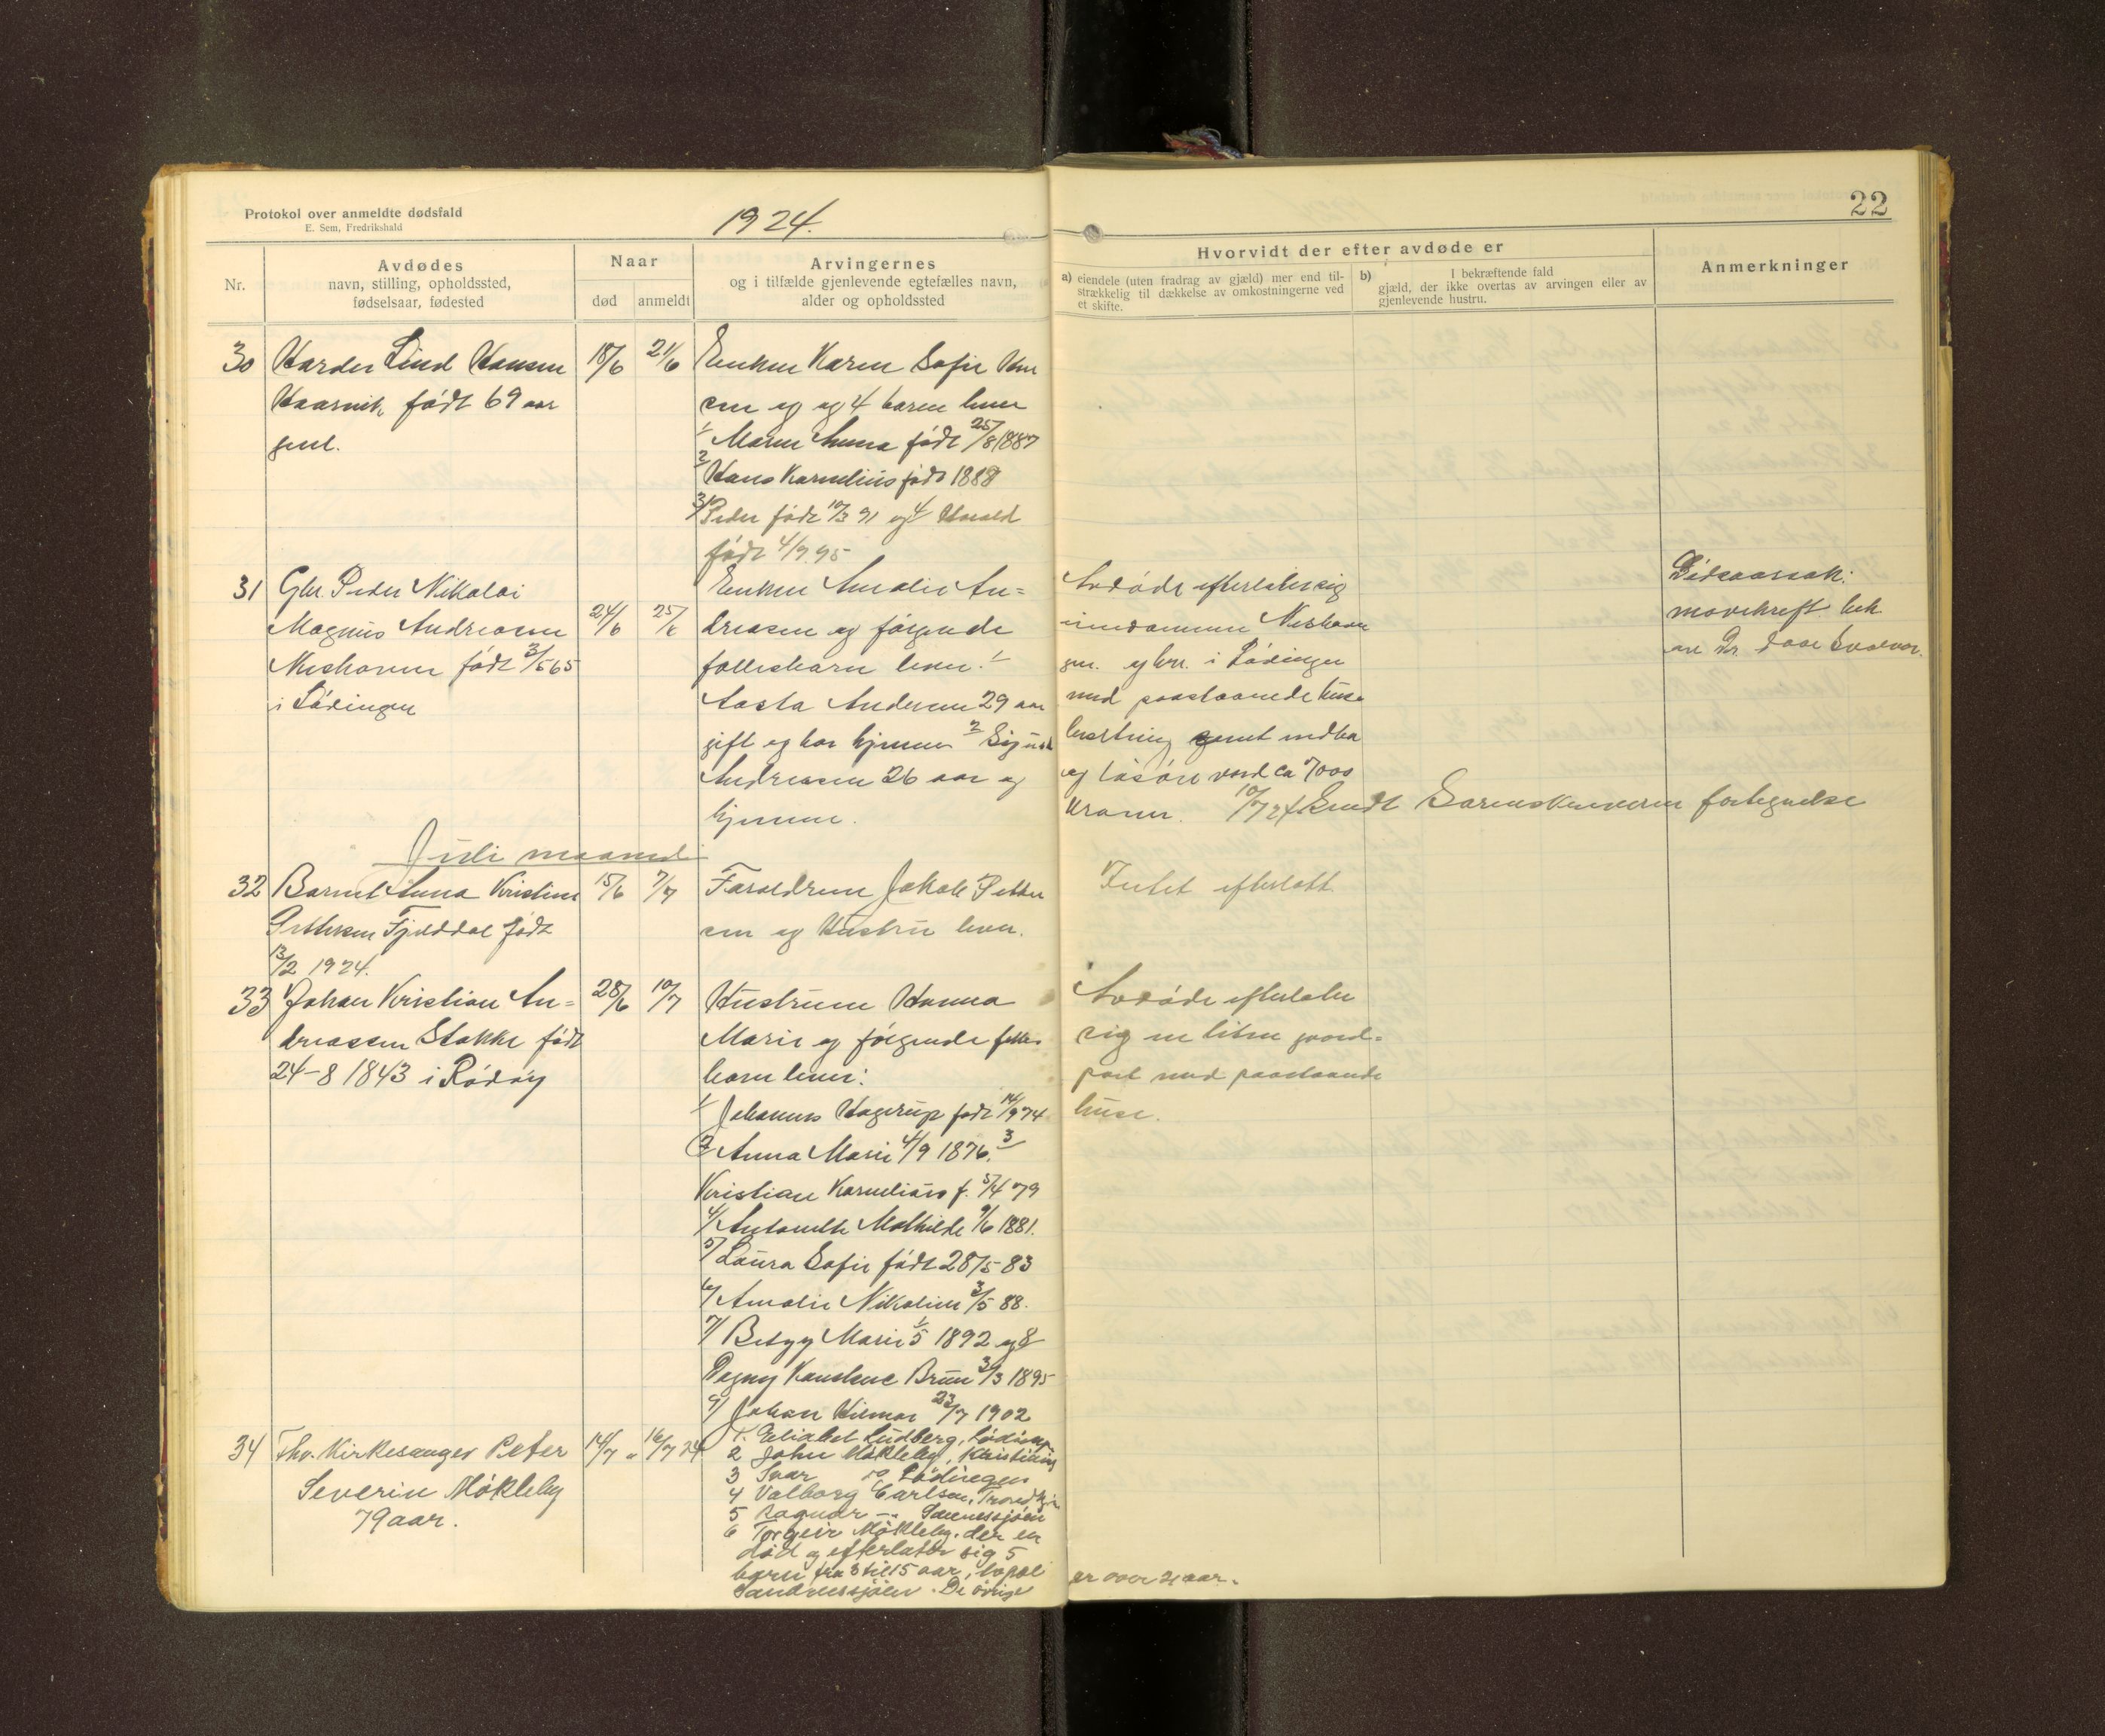 Protokol over anmeldte dødsfald
E. Sem, Fredrikshald
1924.
22
Nr.
Avdødes
navn, stilling, opholdssted,
fødselsaar, fødested
Naar
død
anmeldt
Arvingernes
og i tilfælde gjenlevende egtefælles navn,
alder og opholdssted
Hvorvidt der efter avdøde er
a) eiendele (uten fradrag av gjæld) mer end til-
strækkelig til dækkelse av omkostningerne ved
et skifte.
b) I bekræftende fald
gjæld, der ikke overtas av arvingen eller av
gjenlevende hustru.
Anmerkninger
30
Harder Lind Hansen
født 69 aar
gml.
18/6
21/6
Enken Karen Sofie Han
sen og og 4 barn lever
1/ Maren Anna født 25/8 1887
2/ Hans Kornelius født 1888
3/ Peder født 10/3 91 og 4/ Harald
født 4/9 95
31
Gbr. Peder Nikolai
Magnus Andreasen
Neshavn født 3/5 65
i Lødingen
24/6
25/6
Enken Amalie An=
dreasen og følgende
fællesbarn lever: 1/
Aasta Andersen 29 aar
gift og bor hjemme 2/ Sigurd
Andreasen 26 aar og
hjemme.
Avdøde efterlater sig
eiendommen Neshavn
gnr. og bnr. i Lødingen
med paastaaende huse
besetning samt indbo
og løsøre verd ca 7000
Kroner. 10/7 24 Sendt Sorenskriveren fortegnelse
Dødsaarsak:
mavekreft bek.
av Dr. Daae Svolvær.
Juli maaned
32
Barnet Anna Kristine
Pettersen Fjelddal født
13/2 1924.
15/6
7/7
Foreldrene Jakob Petter
sen og Hustru lever.
Intet efterlatt.
33
Johan Kristian An=
dreassen Stokke født
24-8 1843 i Rødøy
28/6
10/7
Hustruen Hanna
Marie og følgende felles
barn lever:
1/ Johannes Hagerup født 14/9 74
2/ Anna Marie 4/9 1876. 3/
Kristian Kornelius f. 5/4 79
4/ Antonette Mathilde 9/6 1881.
5/ Laura Sofie født 28/5 83
6/ Amalie Nikoline 3/5 88.
7/ Betzy Marie 1/5 1892 og 8
Dagny Konstanse Brun 30/3 1895
9/ Johan Hilmar 23/7 1902
Avdøde efterlater
sig en liten gaard=
part med paastaaende
huse.
34
Fhv. Kirkesanger Peter
Severin Møkleby
79 aar.
14/7
16/7 24
1. Elisabet Lindberg, Lødingen
2 John Møkleby, Kristiania
3 Ivar do Lødingen
4 Valborg Carlsen, Trondhj.
5 Ragnar -"- Sannessjøen
6 Torgeir Møkleby, der er
død og efterlater sig 5
barn fra 3 til 15 aar, bopæl
Sandnessjøen. De øvrige
er over 21 aar.